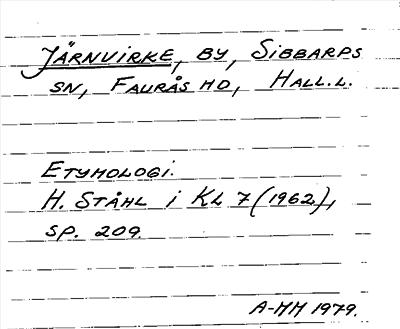 JÄRNVIRKE, BY, SIBBARPS
SN, FAURÅS HD, HALL.L.
ETYMOLOGI.
H. STÅHL i KL 7 (1962),
SP. 209.
A-MH 1979.